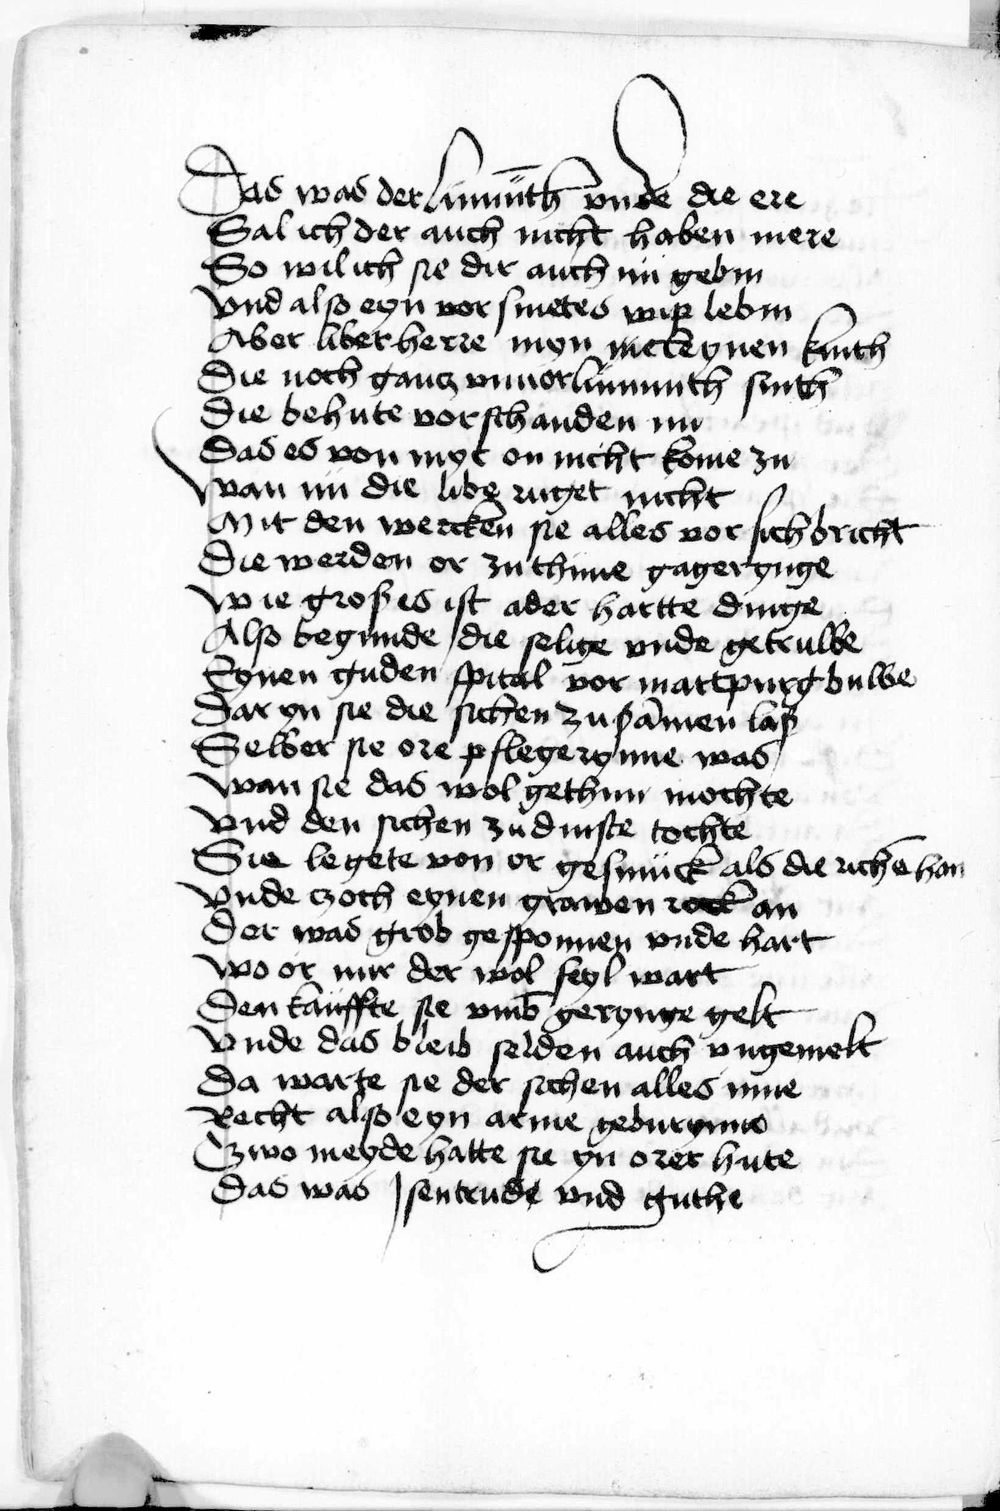 Das was der lümüth vnde die ere
Sal ich der auch nicht haben mere
So wil ich sie dir auch nü gebin
Vnd also eyn vor smetes wip lebin
Aber liber herre myn meteynen kinth
Die noch gancz vnuorlümunth sinth
Die behute vor schanden nu
Das es von myr on nicht kome zu
Wan nü die libe ruget nicht
Mit den wercken sie alles vor sich bricht
Die werden or zu thune gagerynge
Wie groß es ist ader hartte dinge
Also begunde die selige vnde getruwe
Eynen guden spital vor martpurg buwe
Dar yn sie die sichen zu samen laß
Selber sie ore pflegerynne was
Wan sie das wol gethun mochte
Vnd den sichen zu dinste tochte
Sie legete von or gesmück als die riche han
Vnde czoch eynen grawen rock an
Der was grob gesponnen vnde hart
Wo or nur der wol feyl wart
Den kauffte sie vmb gerynge gelt
Vnde das bleib selden auch vngemelt
Da warte sie der sichen alles inne
Recht also eyn arme geburynne
Zwo meyde hatte sie yn orer hute
Das was Isentrude vnd guthe